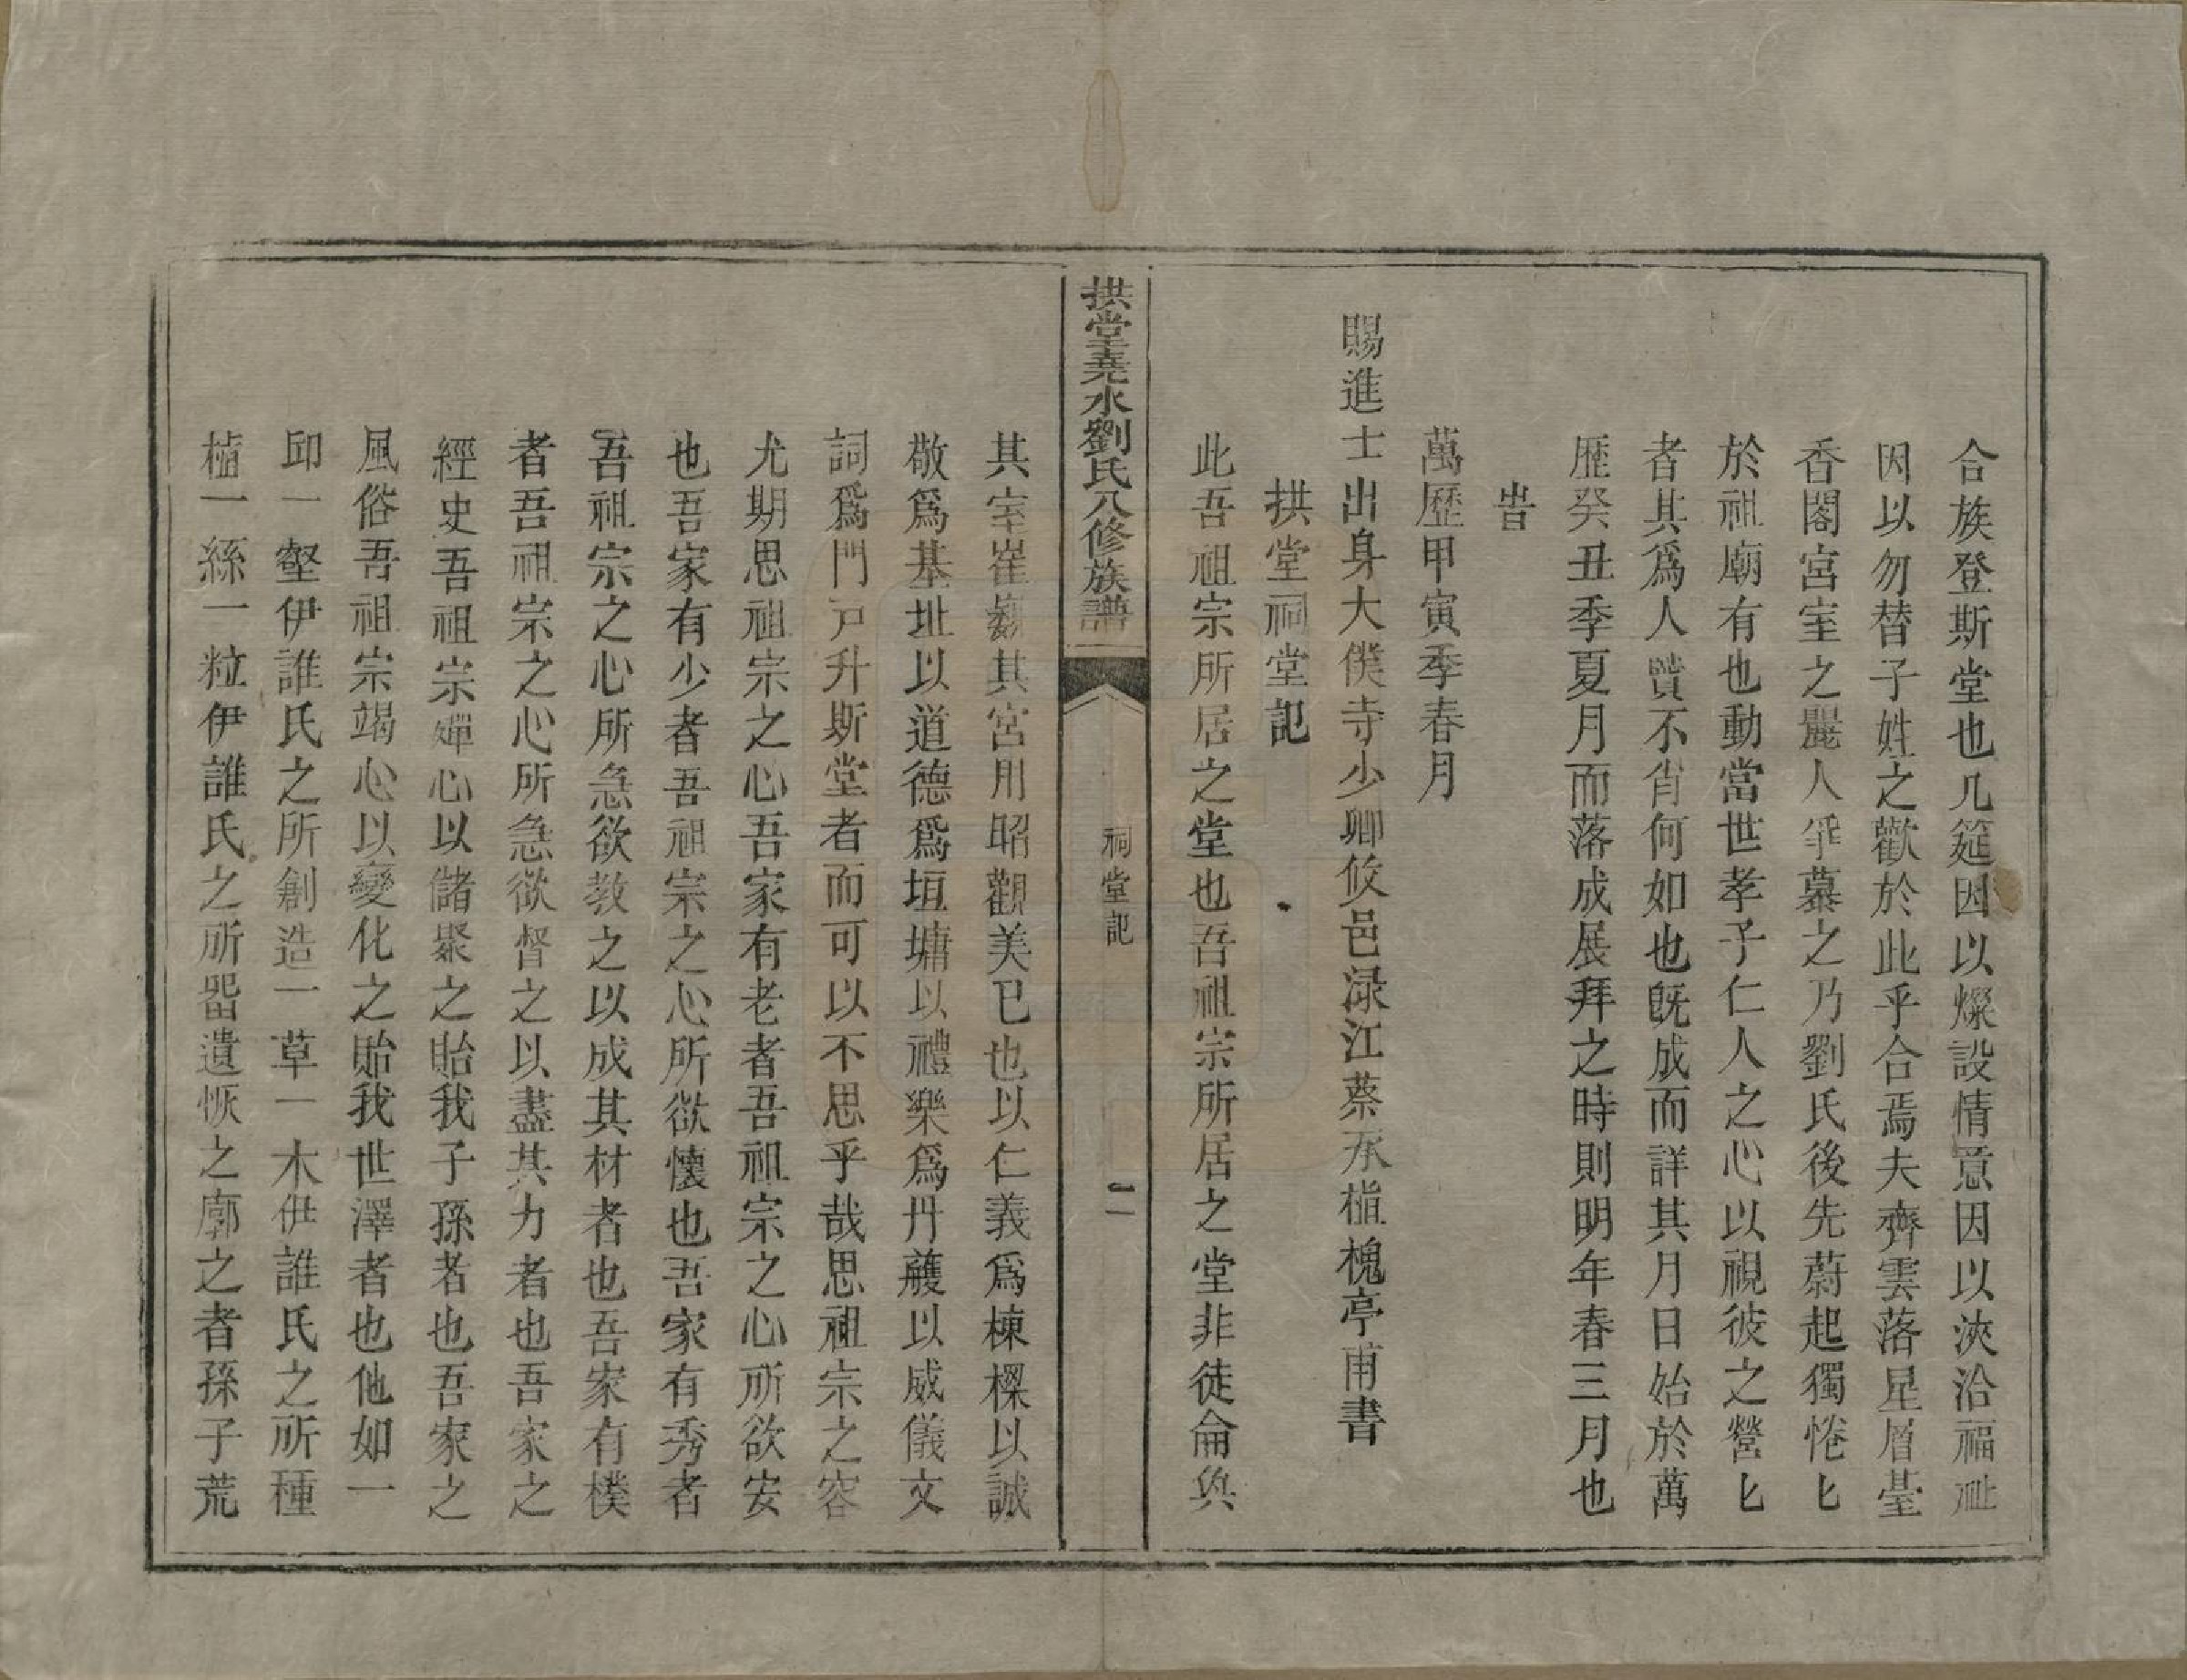 合族登斯堂也几筵因以燦設情意因以浹洽福祉
因以勿替子姓之歡於此乎合焉夫齊雲落星層臺
香閣宮室之麗人爭慕之乃劉氏後先蔚起獨惓匕
於祖廟有也動當世孝子仁人之心以視彼之營匕
者其為人賢不肖何如也既成而詳其月日始於萬
歷癸丑季夏月而落成展拜之時則明年春三月也
旹
萬歷甲寅季春月
賜進士出身大僕寺少卿攸邑淥江蔡承植槐亭甫書
拱堂祠堂記
此吾祖宗所居之堂也吾祖宗所居之堂非徒侖與
拱堂堯水劉氏八修族譜
祠堂記
二
其室崔巍其宮用昭觀美已也以仁義為棟樑以誠
敬為基址以道德為垣墉以禮樂為丹雘以威儀文
詞為門戸升斯堂者而可以不思乎哉思祖宗之容
尤期思祖宗之心吾家有老者吾祖宗之心所欲安
也吾家有少者吾祖宗之心所欲懷也吾家有秀者
吾祖宗之心所急欲教之以成其材者也吾家有樸
者吾祖宗之心所急欲督之以盡其力者也吾家之
經史吾祖宗殫心以儲聚之貽我子孫者也吾家之
風俗吾祖宗竭心以變化之貽我世澤者也他如一
邱一壑伊誰氏之所創造一草一木伊誰氏之所種
植一絲一粒伊誰氏之所畱遺恢之廓之者孫子荒